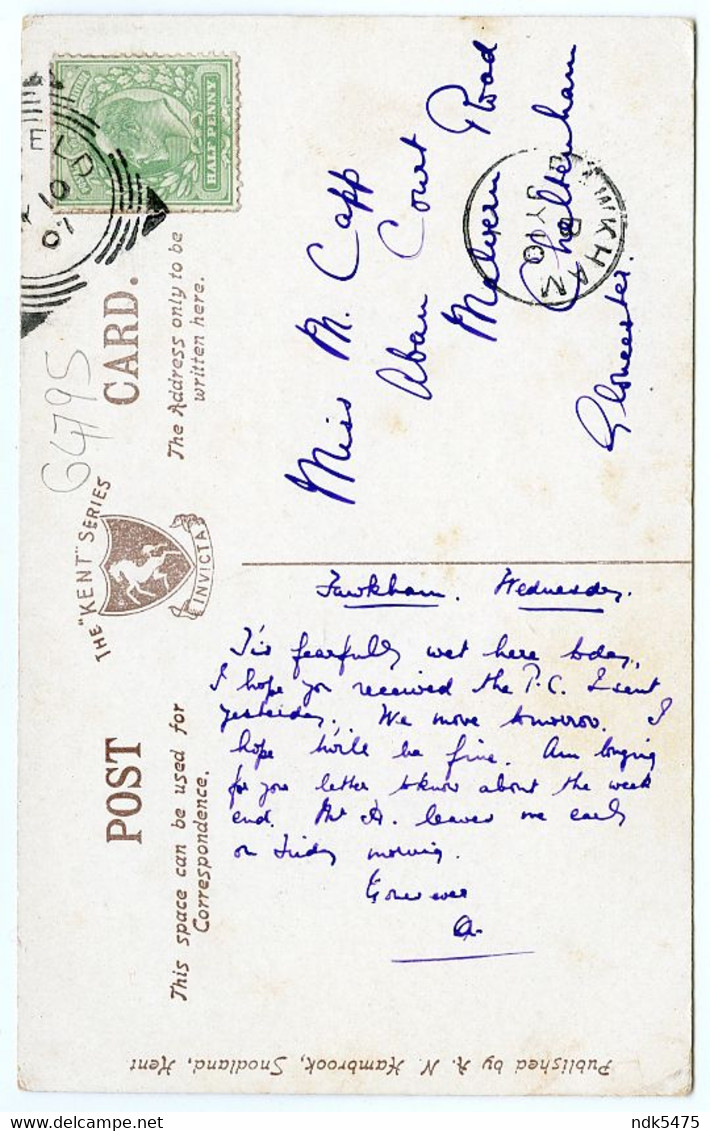 POST CARD.
THE "KENT" SERIES
INVICTA
This space can be used for
Correspondence.
The Address only to be
written here.
64795
HALF PENNY
ELD
10
07
FAWKHAM
B
JY 10
07
Miss M. Capp
Court
Malvern Road
Cheltenham
Gloucester.
Fawkham. Wednesday.
T'is fearfully wet here today,
I hope you received the P.C. I sent
yesterday. We move tomorrow. I
hope twill be fine. Am longing
for your letter to know about the week
end. A. leaves me early
on Friday morning.
ever
A.
Published by A. N. Hambrook, Snodland, Kent
ndk5475